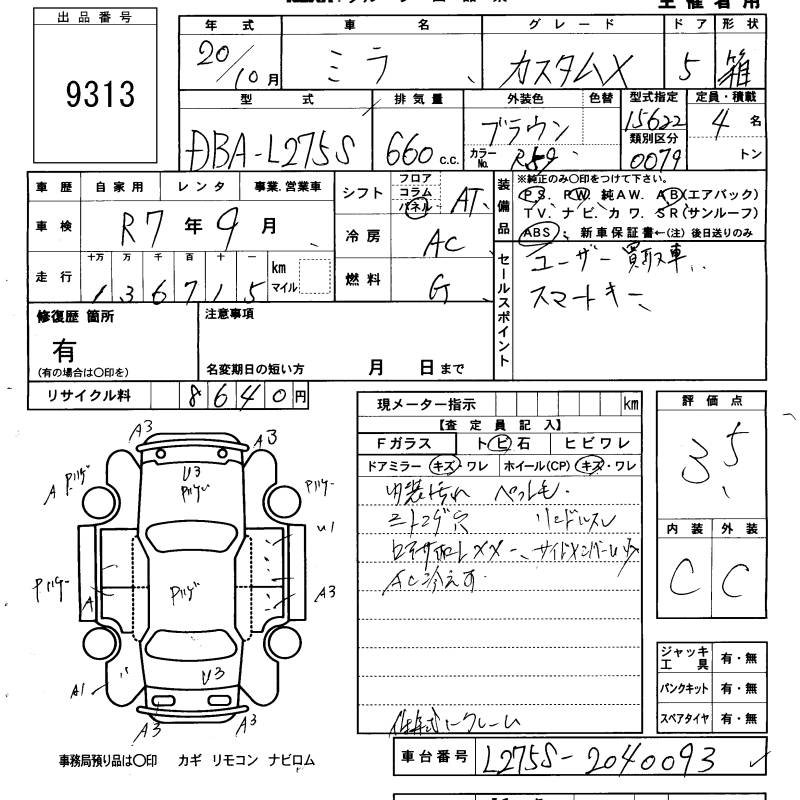 主催者用
出品番号
9313
年式 車名 グレード ドア 形状
20/10月 ミラ カスタムX 5 箱
型式 排気量 外装色 色替 型式指定 定員・積載
DBA-L275S 660c.c. ブラウン 15622 4名
カラーNo. R59 類別区分 0079 トン
車歴 自家用 レンタ 事業.営業車
シフト フロア コラム パネル AT
装備品 ※純正のみ〇印をつけて下さい。
P S. P W. 純AW. A B(エアバック)
TV. ナビ. カワ. SR(サンルーフ)
ABS 新車保証書←(注) 後日送りのみ
車検 R7年9月
冷房 AC
走行 十万 万 千 百 十 一 km マイル
136715
燃料 G
セールスポイント
ユーザー買取車
スマートキー
修復歴 箇所
有
(有の場合は〇印を)
注意事項
名変期日の短い方 月 日まで
リサイクル料 8640円
現メーター指示 km
【査定員記入】
Fガラス トビ石 ヒビワレ
ドアミラー キズ・ワレ ホイール(CP) キズ・ワレ
内装汚れ ペット毛.
ニトコゲ穴
AC冷えず
評価点
3.5
内装 外装
C C
A3 A3
U3
A
U1
A
A3
A1
U3
A3 A3
ジャッキ工具 有・無
パンクキット 有・無
スペアタイヤ 有・無
車台番号 L275S-2040093
事務局預り品は〇印 カギ リモコン ナビロム